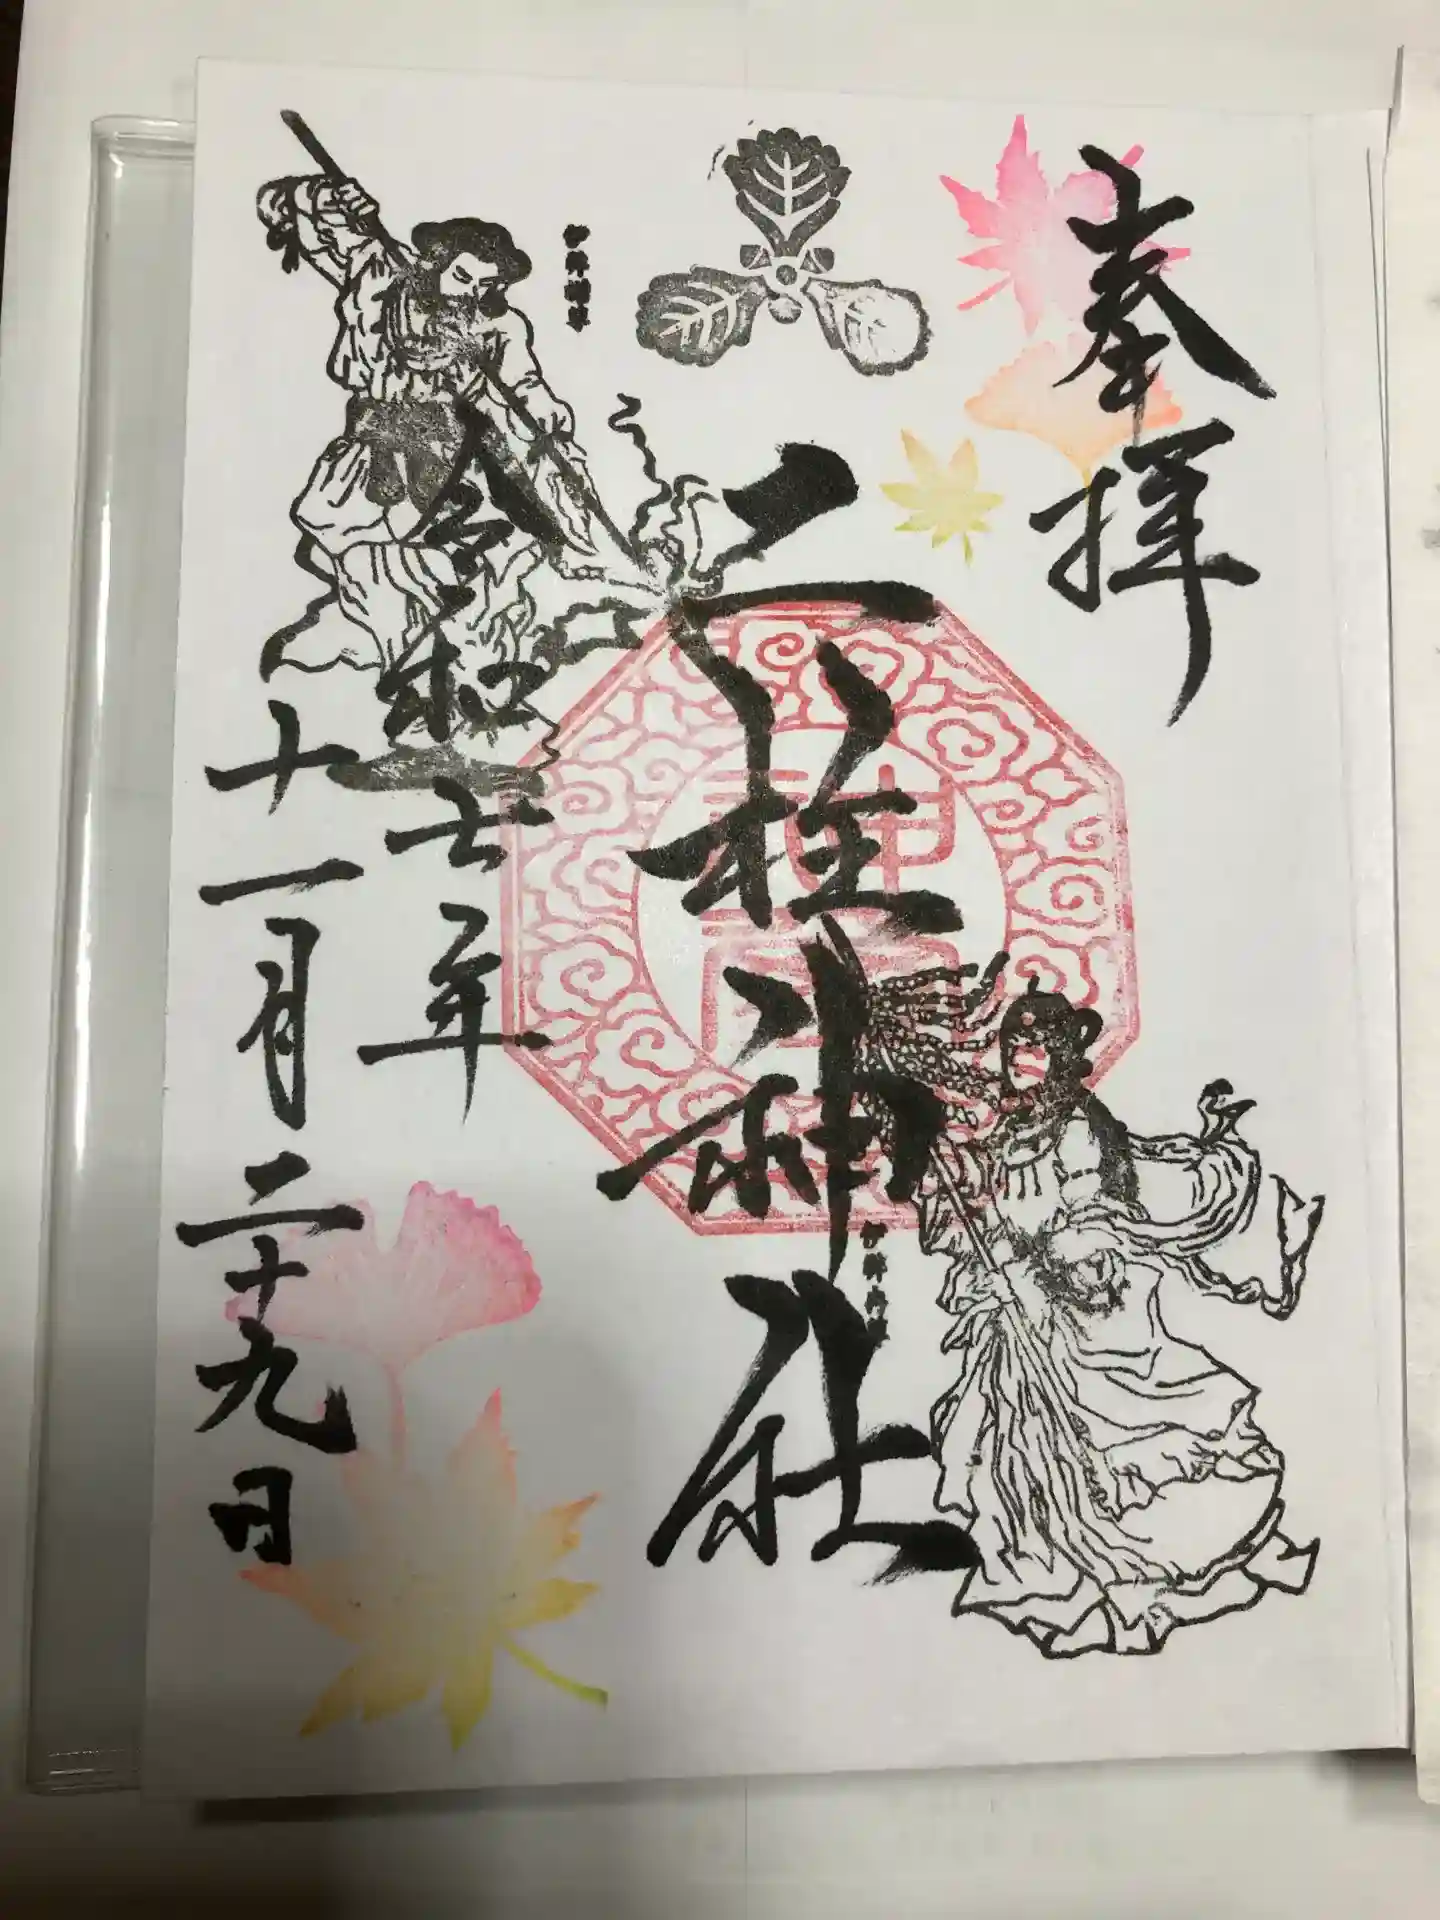 奉拝
二柱神社
令和七年
十一月二十九日